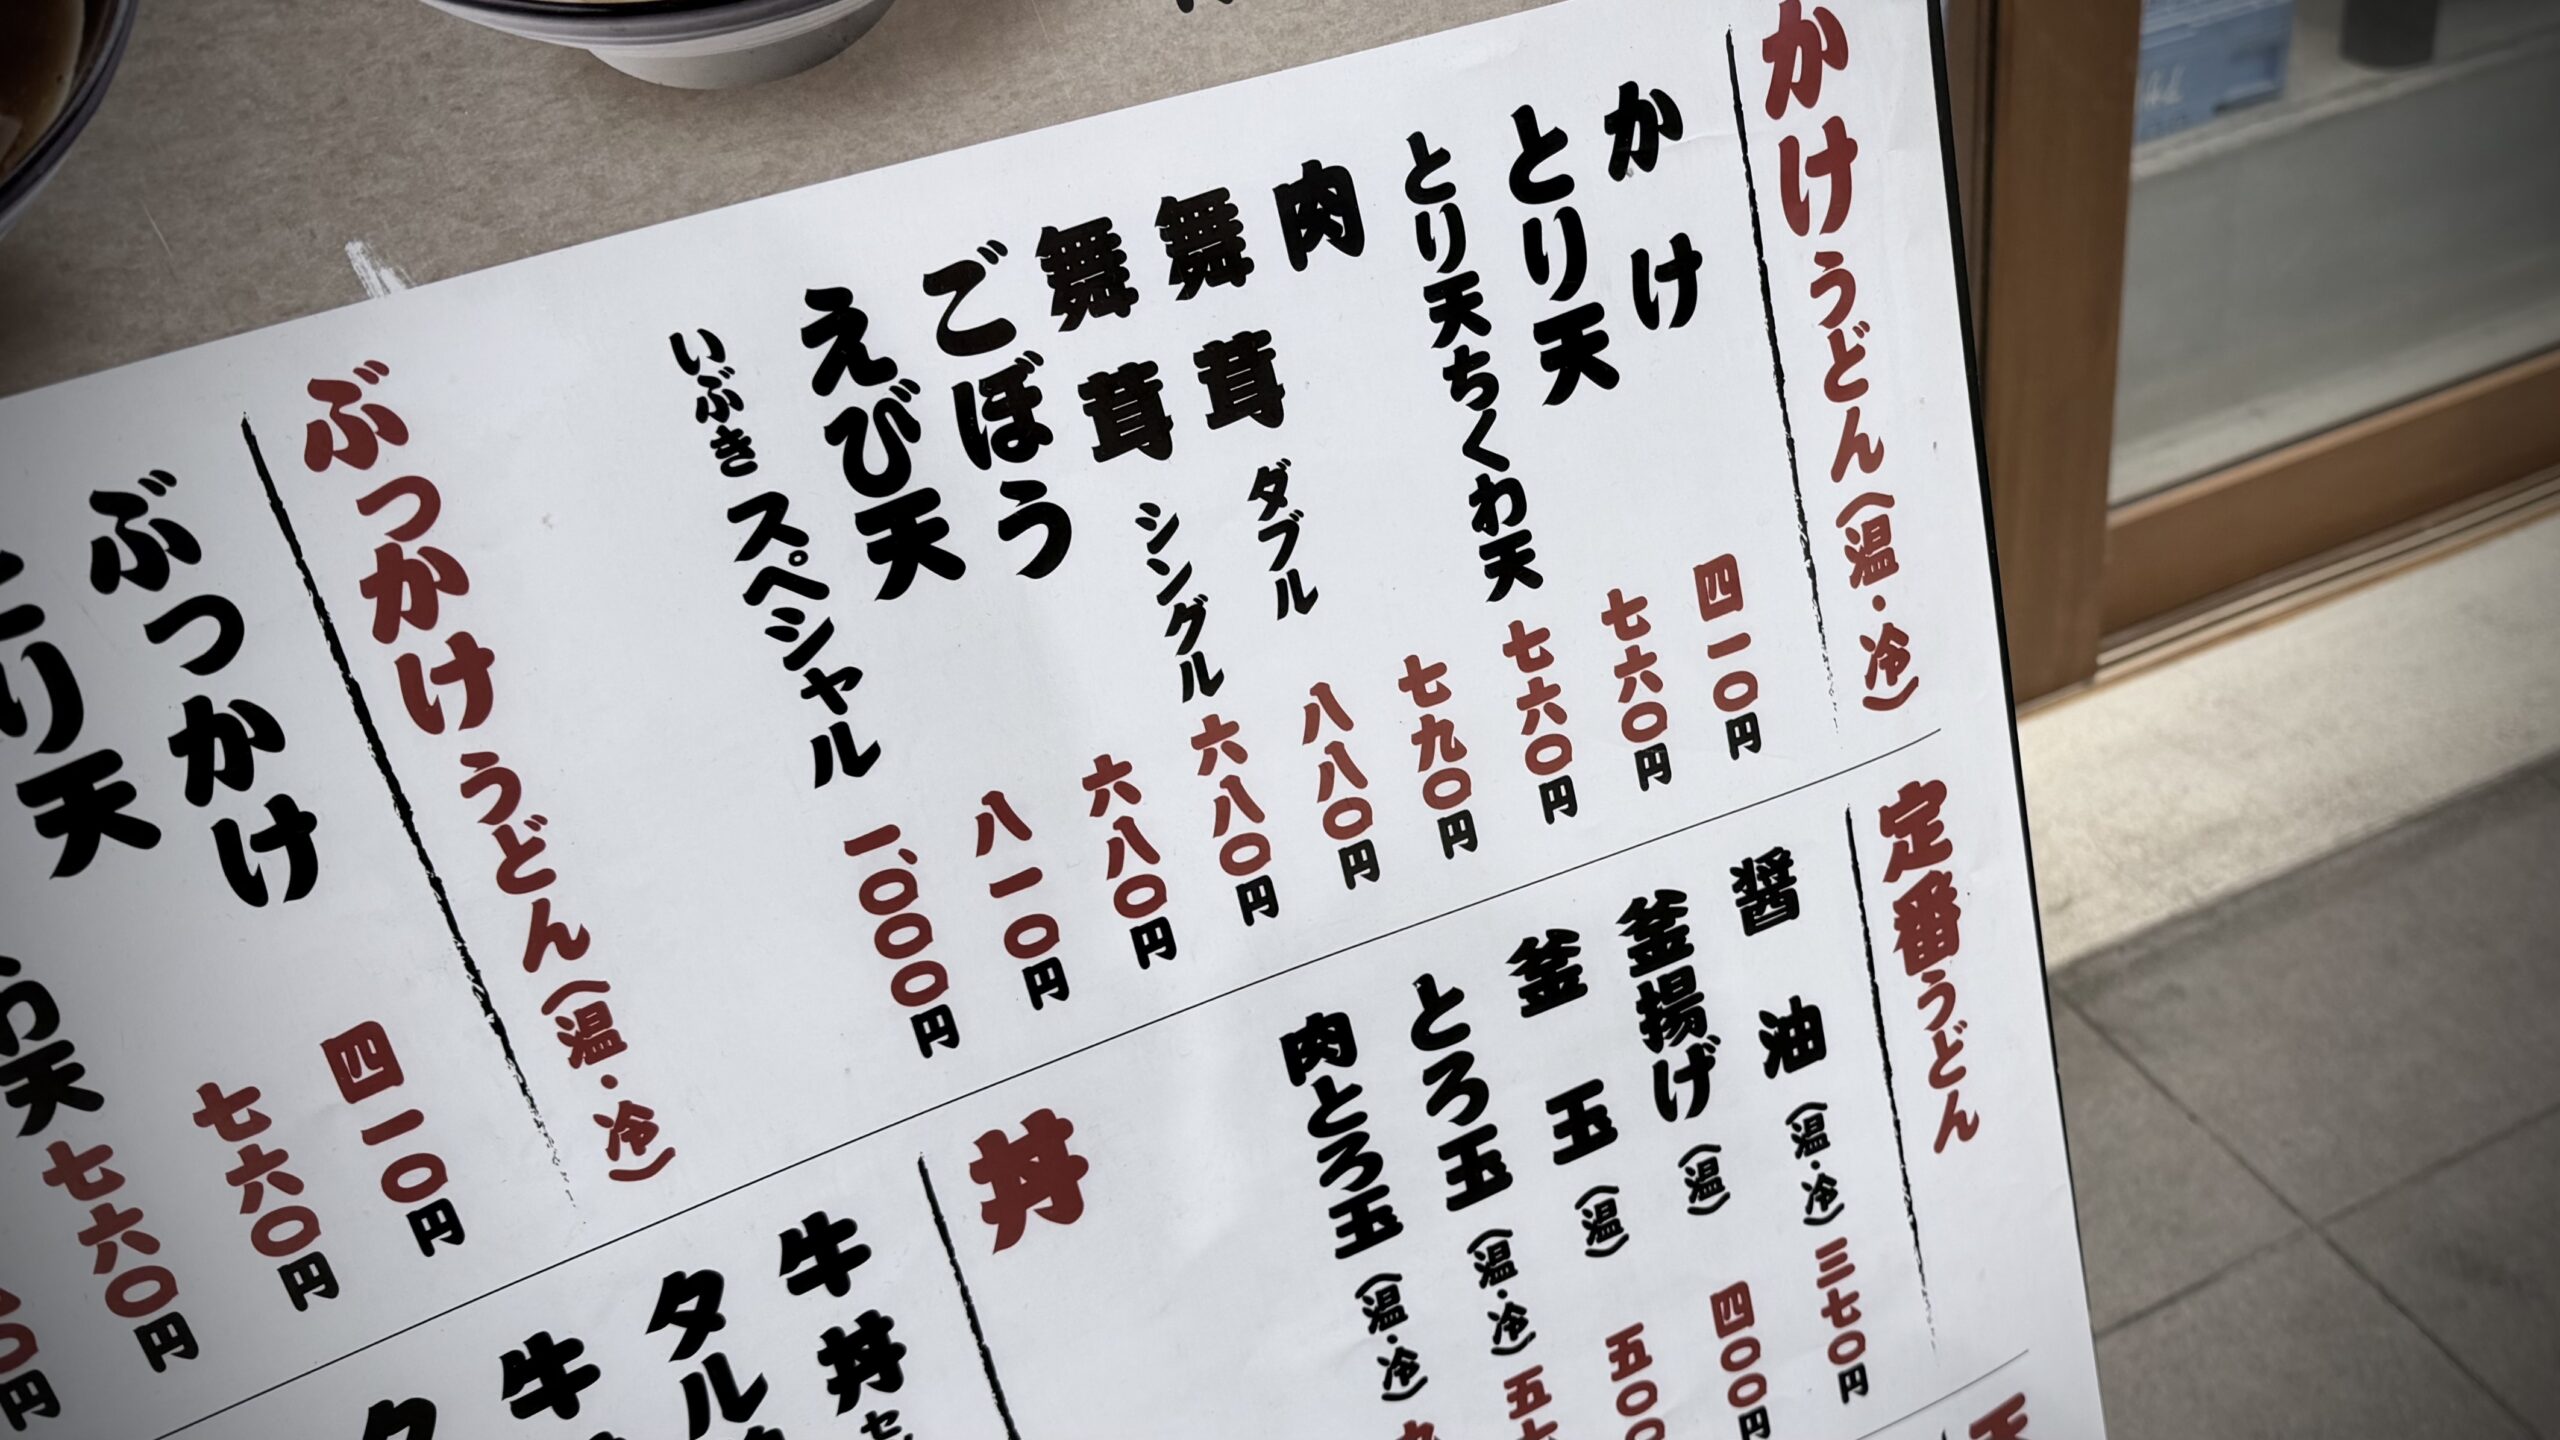 かけうどん（温・冷）
かけ 四一〇円
とり天 七六〇円
とり天ちくわ天 七六〇円
肉 七九〇円
舞茸 ダブル 八八〇円
舞茸 シングル 六八〇円
ごぼう 六八〇円
えび天 八一〇円
いぶきスペシャル 一、〇〇〇円
ぶっかけうどん（温・冷）
ぶっかけ 四一〇円
とり天 七六〇円
わ天 七六〇円
〇円
定番うどん
醤油（温・冷）三七〇円
釜揚げ（温）四〇〇円
釜玉（温）五〇〇
とろ玉（温・冷）五
肉とろ玉（温・冷）
丼
牛丼セ
タル
牛
タ
天